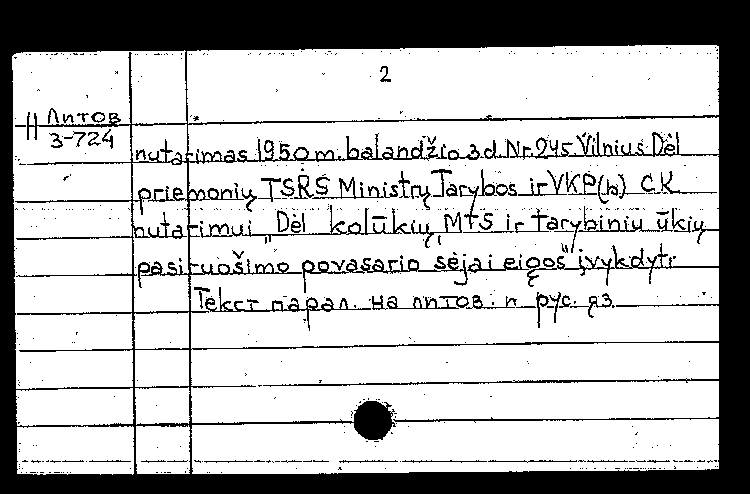 2
Н Литов
3-724
nutarimas 1950 m. balandžio 3 d. Nr. 245. Vilnius Dėl
priemonių TSRS Ministrų Tarybos ir VKP(b) CK
nutarimui „Dėl kolūkių, MTS ir tarybinių ūkių
pasiruošimo povasario sėjai eigos" įvykdyti
Текст парал. на литов. и рус. яз.